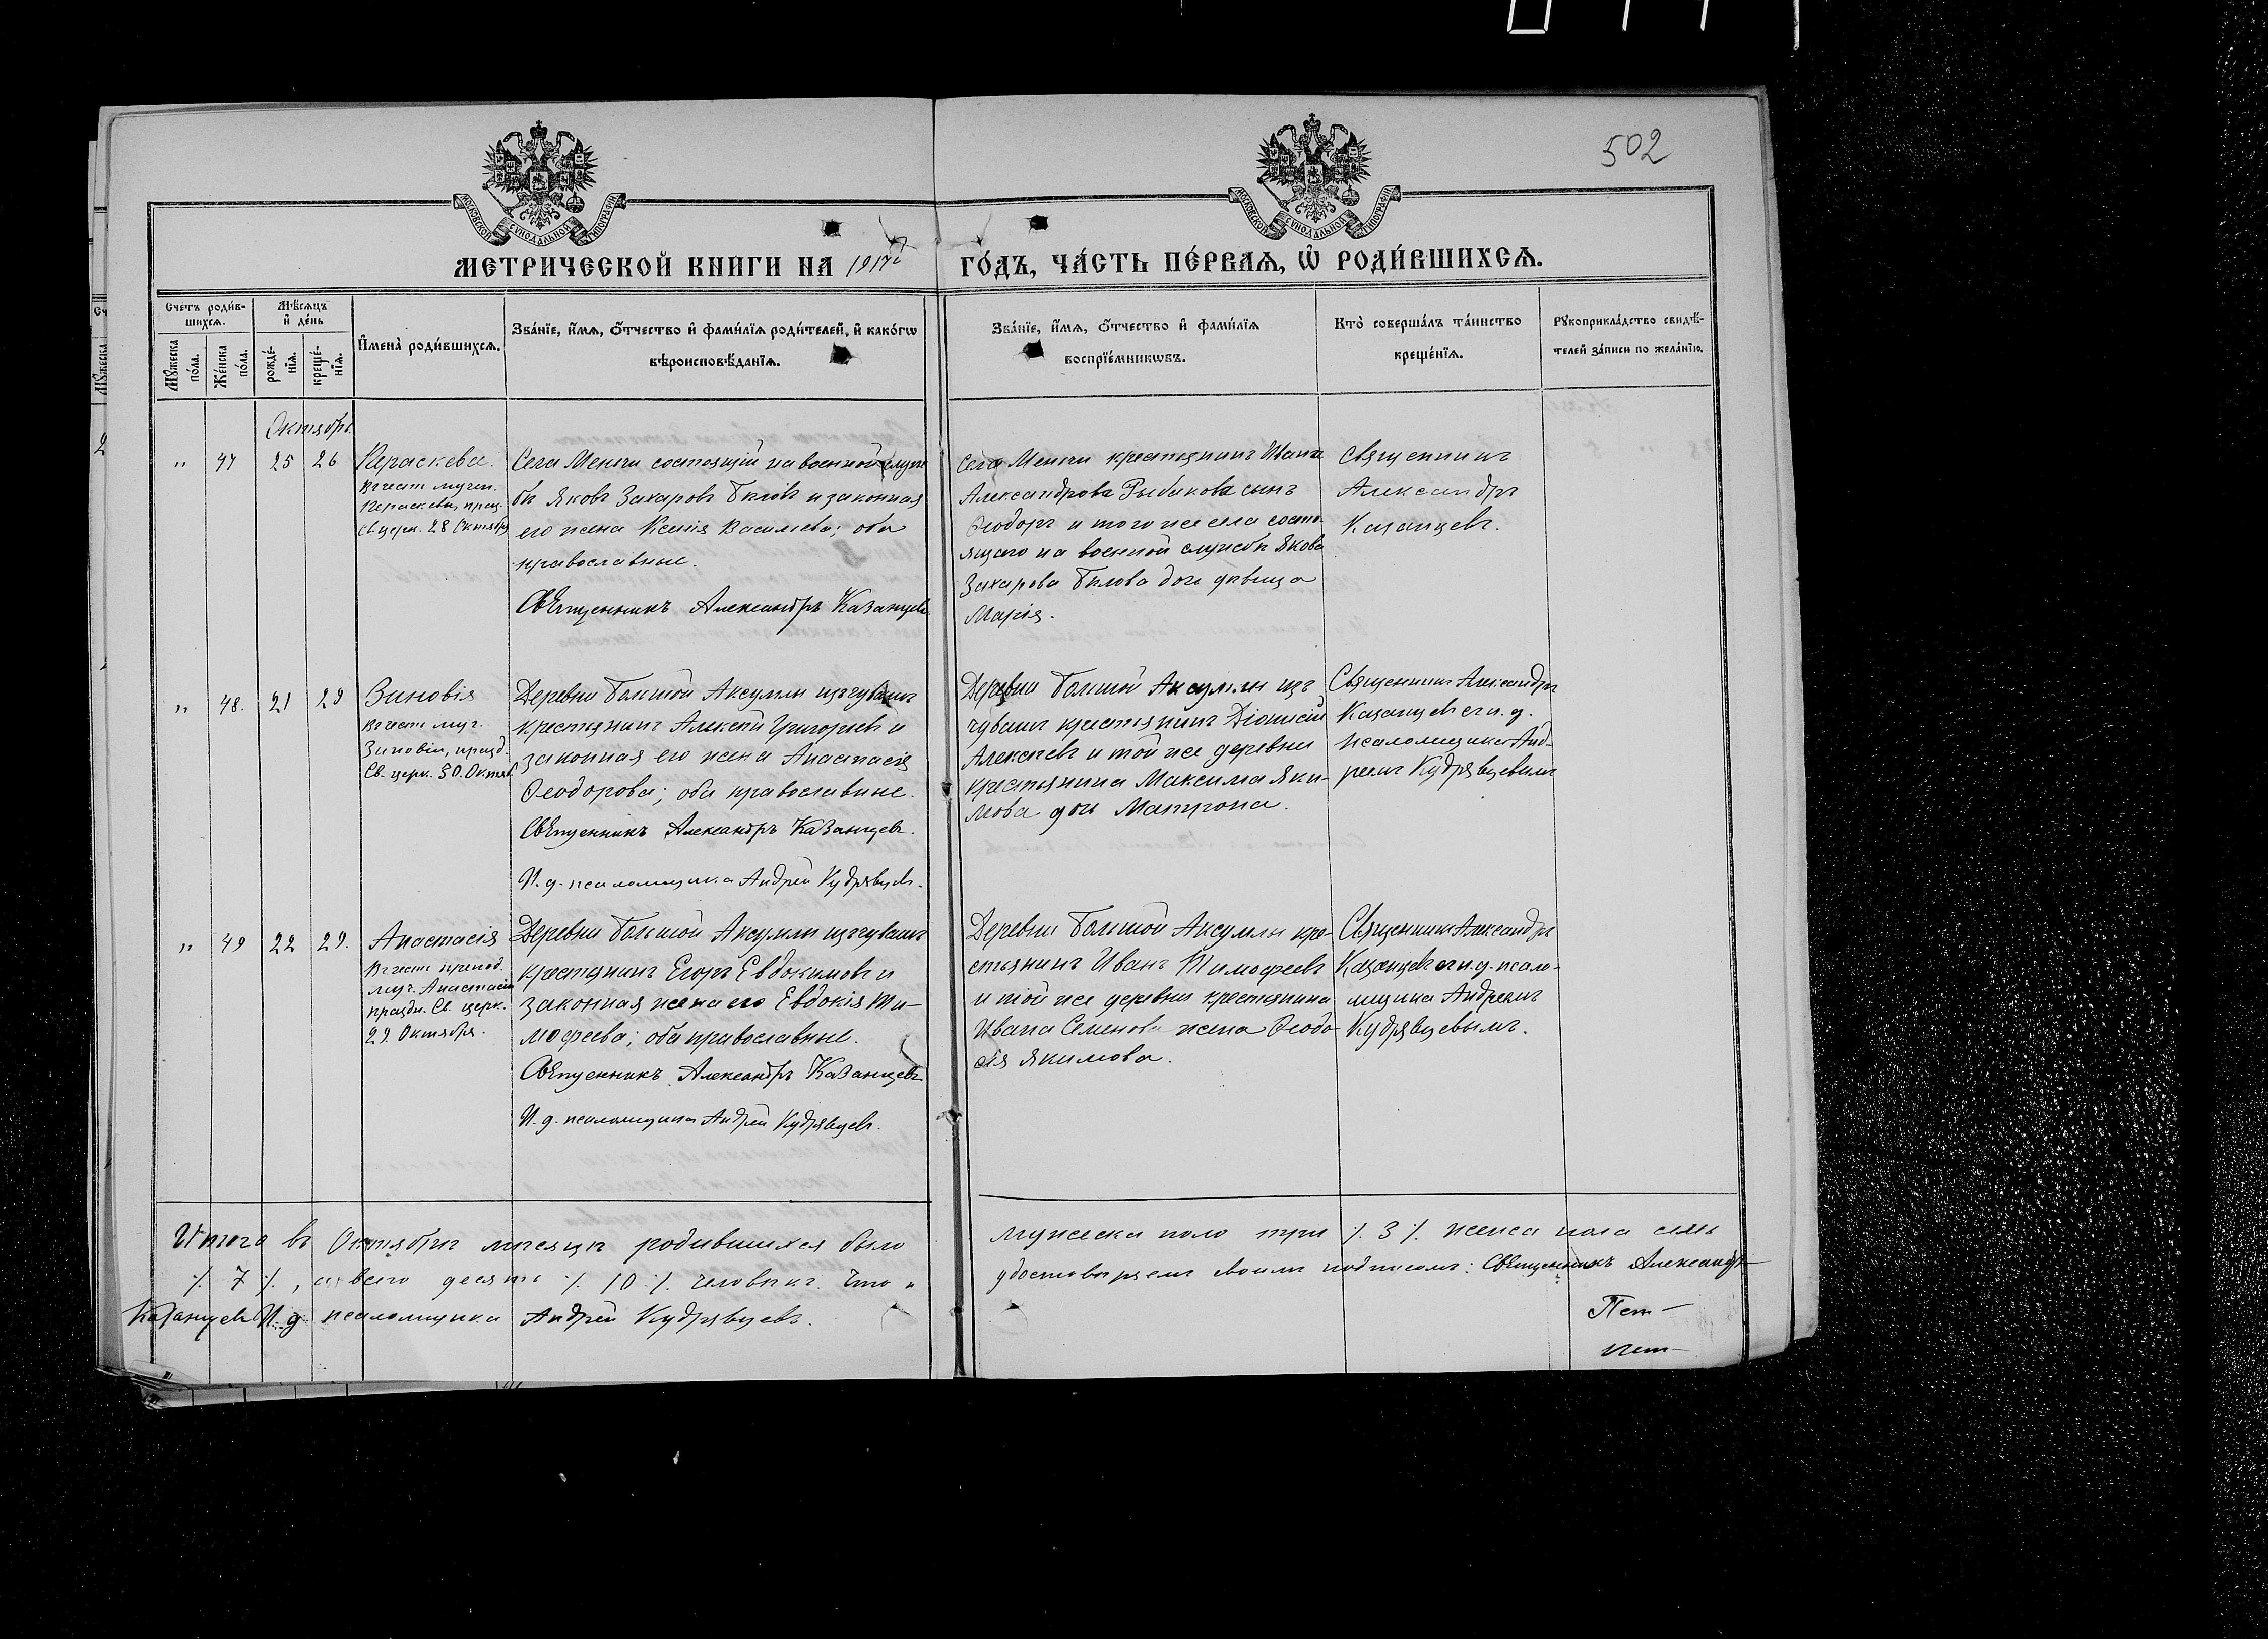 502
МОСКОВСКОЙ СУНОДАЛЬНОЙ ТИПОГРАФІИ
МОСКОВСКОЙ СУНОДАЛЬНОЙ ТИПОГРАФІИ
МЕТРИЧЕСКОЙ КНИГИ НА 1917й ГО́ДЪ, ЧА́СТЬ ПЕ́РВАѦ, Ѡ҆ РОДИ́ВШИХСѦ.
Сче́тъ роди́в-
шихсѧ.
Мꙋ́жеска по́ла.
Же́нска по́ла.
Мѣ́сѧцъ
и҆ де́нь
рожде́-
нїѧ.
креще́-
нїѧ.
И҆мена̀ роди́вшихсѧ.
Зва́нїе, и҆́мѧ, ѻ҆́тчество и҆ фами́лїѧ роди́телей, и҆ како́гѡ
вѣроисповѣ́данїѧ.
Зва́нїе, и҆́мѧ, ѻ҆́тчество и҆ фами́лїѧ
воспрїе́мникѡвъ.
Кто̀ соверша́лъ та́инство
креще́нїѧ.
Рꙋкоприкла́дство свидѣ́-
телей за́писи по жела́нїю.
Октябрь
" 47 25 26
Параскева.
Въ честь мучен.
Параскевы, празд.
Св. церк. 28 Октября
Села Менчи состоящій на военной служ
бѣ Яковъ Захаровъ Бѣловъ и законная
его жена Ксенія Васильева; оба
православные.
Священникъ Александръ Казанцевъ
Села Менчи крестьянина Ивана
Александрова Рыбакова сынъ
Ѳеодоръ и того же села состо-
ящаго на военной службѣ Якова
Захарова Бѣлова дочь дѣвица
Марія.
Священникъ
Александръ
Казанцевъ.
" 48. 21 29
Зиновія
Въ честь муч.
Зиновіи, празд.
Св. церк. 30. Октяб.
Деревни Большой Аксумлы изъ чувашъ
крестьянинъ Алексѣй Григорьевъ и
законная его жена Анастасія
Ѳеодорова; оба православные.
Священникъ Александръ Казанцевъ.
И. д. псаломщика Андрей Кудрявцевъ.
Деревни Большой Аксумлы изъ
чувашъ крестьянинъ Діонисій
Алексѣевъ и той же деревни
крестьянина Максима Яки-
мова дочь Матрона.
Священникъ Александръ
Казанцевъ съ и. д.
псаломщика Анд-
реемъ Кудрявцевымъ
" 49 22 29.
Анастасія
Въ честь препод.
муч. Анастасіи
праздн. Св. церк.
29. Октября.
Деревни Большой Аксумлы изъ чувашъ
крестьянинъ Егоръ Евдокимовъ и
законная жена его Евдокія Ти-
мофеева; оба православные.
Священникъ Александръ Казанцевъ
И. д. псаломщика Андрей Кудрявцевъ.
Деревни Большой Аксумлы кре-
стьянинъ Иванъ Тимофеевъ
и той же деревни крестьянина
Ивана Семенова жена Ѳеодо
сія Якимова.
Священникъ Александръ
Казанцевъ съ и. д. псало-
мщика Андреемъ
Кудрявцевымъ.
Итого въ Октябрѣ мѣсяцѣ родившихся было мужеска пола три ٪ 3 ٪ женска пола семь
٪ 7 ٪, а всего десять ٪ 10 ٪ человѣкъ. Что удостовѣряемъ своимъ подписомъ: Священникъ Александръ
Казанцевъ И. д. псаломщика Андрей Кудрявцевъ.